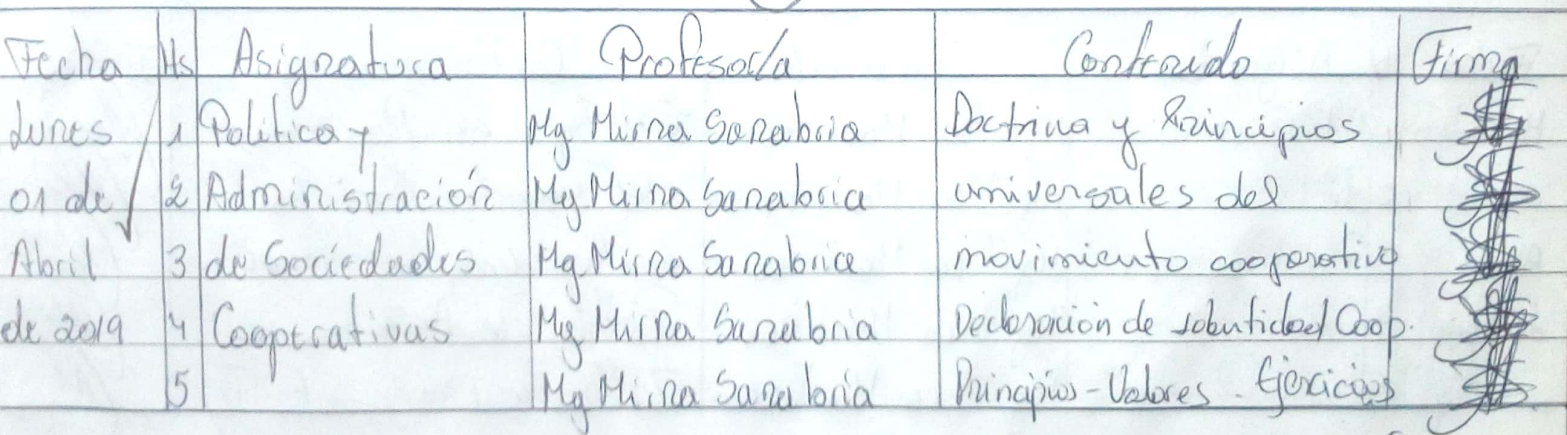 Fecha Hs Asignatura Profesor/a Contenido Firma
Lunes 1 Política y Mg Mirna Sanabria Doctrina y Principios
01 de 2 Administración Mg Mirna Sanabria universales del
Abril 3 de Sociedades Mg Mirna Sanabria movimiento cooperativo
de 2019 4 Cooperativas Mg Mirna Sanabria Declaración de Identidad Coop.
5 Mg Mirna Sanabria Principios - Valores - Ejercicios